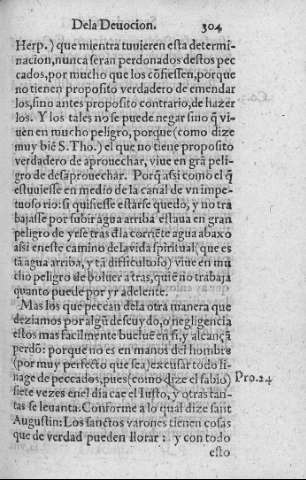 Dela Deuocion. 304
Herp.) que mientra tuuieren esta determi-
nacion, nunca seran perdonados destos pec
cados, por mucho que los cõfiessen, porque
no tienen proposito verdadero de emendar
los, sino antes proposito contrario, de hazer
los. Y los tales no se puede negar sino q̃ vi-
uen en mucho peligro, porque (como dize
muy biẽ S. Tho.) el que no tiene proposito
verdadero de aprouechar, viue en grã peli-
gro de desaprouechar. Porq̃ assi como el q̃
estuuiesse en medio de la canal de vn impe-
tuoso rio: si quisiesse estarse quedo, y no tra
bajasse por subir agua arriba estaua en gran
peligro de yrse tras dla corriẽte agua abaxo
assi en este camino dela vida spiritual, que es
tã agua arriba, y tã difficultoso) viue en mu
cho peligro de boluer a tras, quiẽ no trabaja
quanto puede por yr adelente.
Mas los que peccan dela otra manera que
deziamos por algũ descuydo, o negligencia
estos mas facilmente bueluẽ en si, y alcançã
perdõ: porque no es en manos del hombre
(por muy perfecto que sea) excusar todo li-
nage de peccados, pues (como dize el sabio) Pro. 24
siete vezes en el dia cae el Iusto, y otras tan-
tas se leuanta. Conforme a lo qual dize sant
Augustin: Los sanctos varones tienen cosas
que de verdad pueden llorar: y con todo
esto